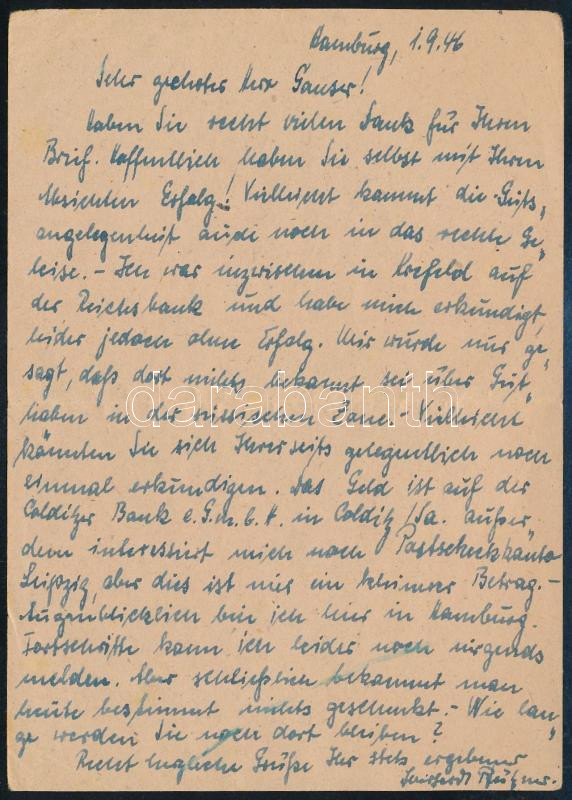 Hamburg, 1.9.46
Sehr geehrter Herr Ganser!
Haben Sie recht vielen Dank für Ihren
Brief. Hoffentlich haben Sie selbst mit Ihren
Absichten Erfolg! Vielleicht kommt die Guts„
angelegenheit auch noch in das rechte Ge„
leise. - Ich war inzwischen in Krefeld auf
der Reichsbank und habe mich erkundigt,
leider jedoch ohne Erfolg. Mir wurde nur ge„
sagt, daß dort nichts bekannt sei über Gut„
haben in der russischen Zone. - Vielleicht
könnten Sie sich Ihrerseits gelegentlich noch
einmal erkundigen. Das Geld ist auf der
Colditzer Bank e.G.m.b.H. in Colditz/Sa. außer
dem interessiert mich noch Postscheckkonto
Leipzig, aber dies ist nur ein kleiner Betrag. -
Augenblicklich bin ich hier in Hamburg.
Fortschritte kann ich leider noch nirgends
melden. Aber schließlich bekommt man
heute bestimmt nichts geschenkt. - Wie lan„
ge werden Sie noch dort bleiben?
Recht herzliche Grüße Ihr stets ergebener
darabanth